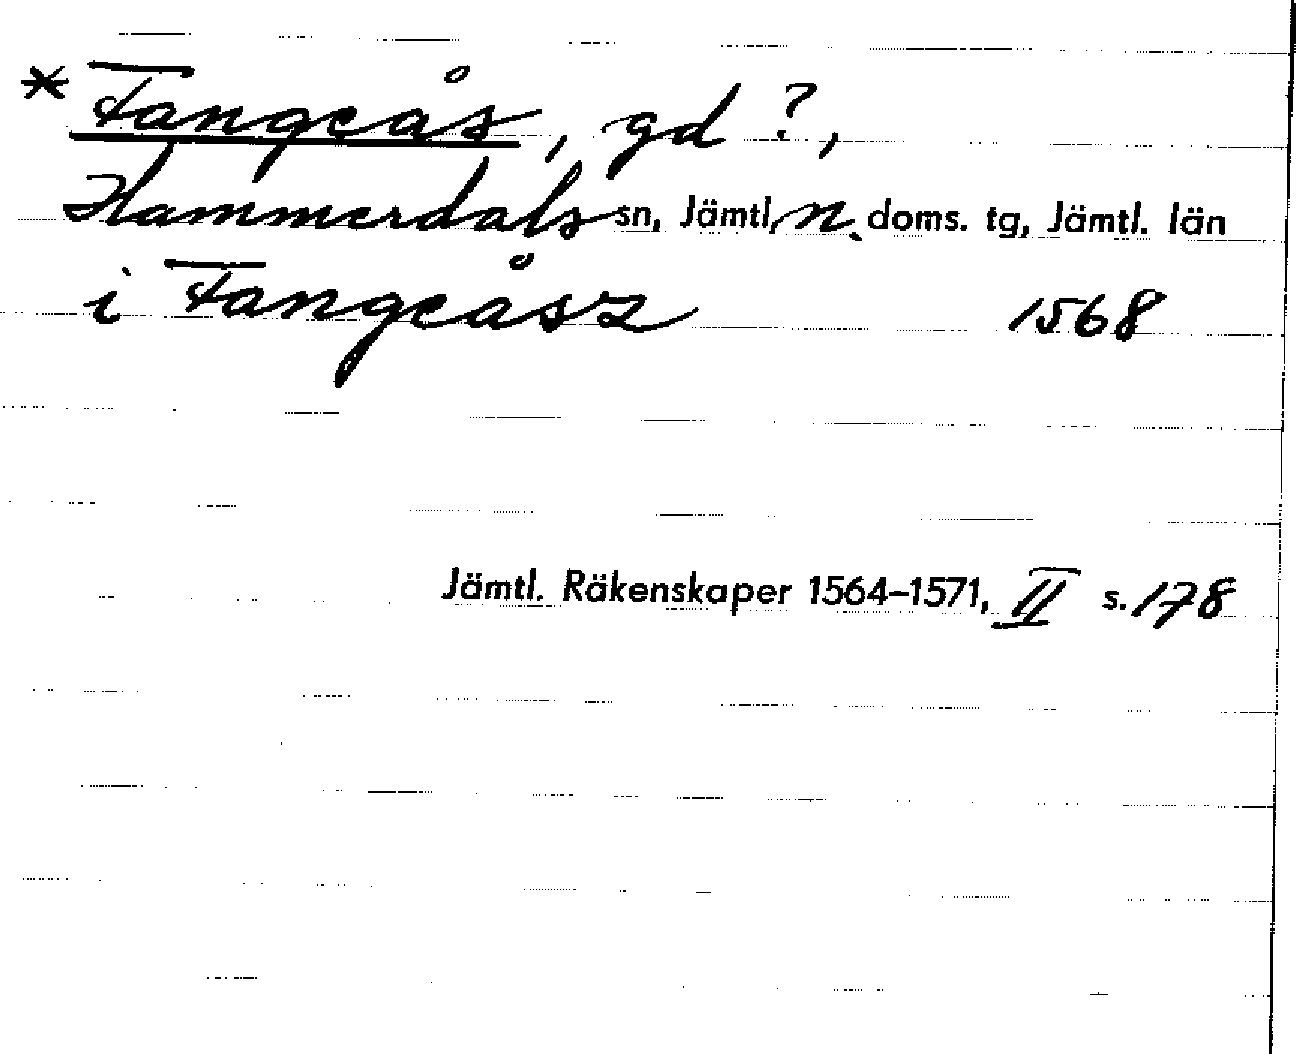 * Fangeås, gd ?,
Hammerdals sn, Jämtl, n. doms. tg, Jämtl. län
i Fangeåsz 1568
Jämtl. Räkenskaper 1564–1571, II s. 178